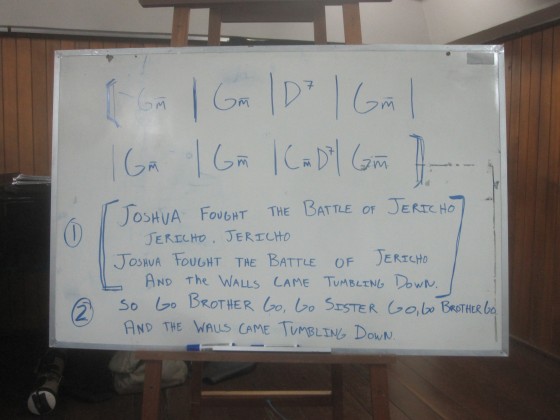 [ Gm̅ | Gm̅ | D⁷ | Gm̅ |
| Gm̅ | Gm̅ | Cm̅ D⁷ | Gm̅ ]
① JOSHUA FOUGHT THE BATTLE OF JERICHO
JERICHO, JERICHO
JOSHUA FOUGHT THE BATTLE OF JERICHO
AND THE WALLS CAME TUMBLING DOWN.
② SO GO BROTHER GO, GO SISTER GO, GO BROTHER GO
AND THE WALLS CAME TUMBLING DOWN.